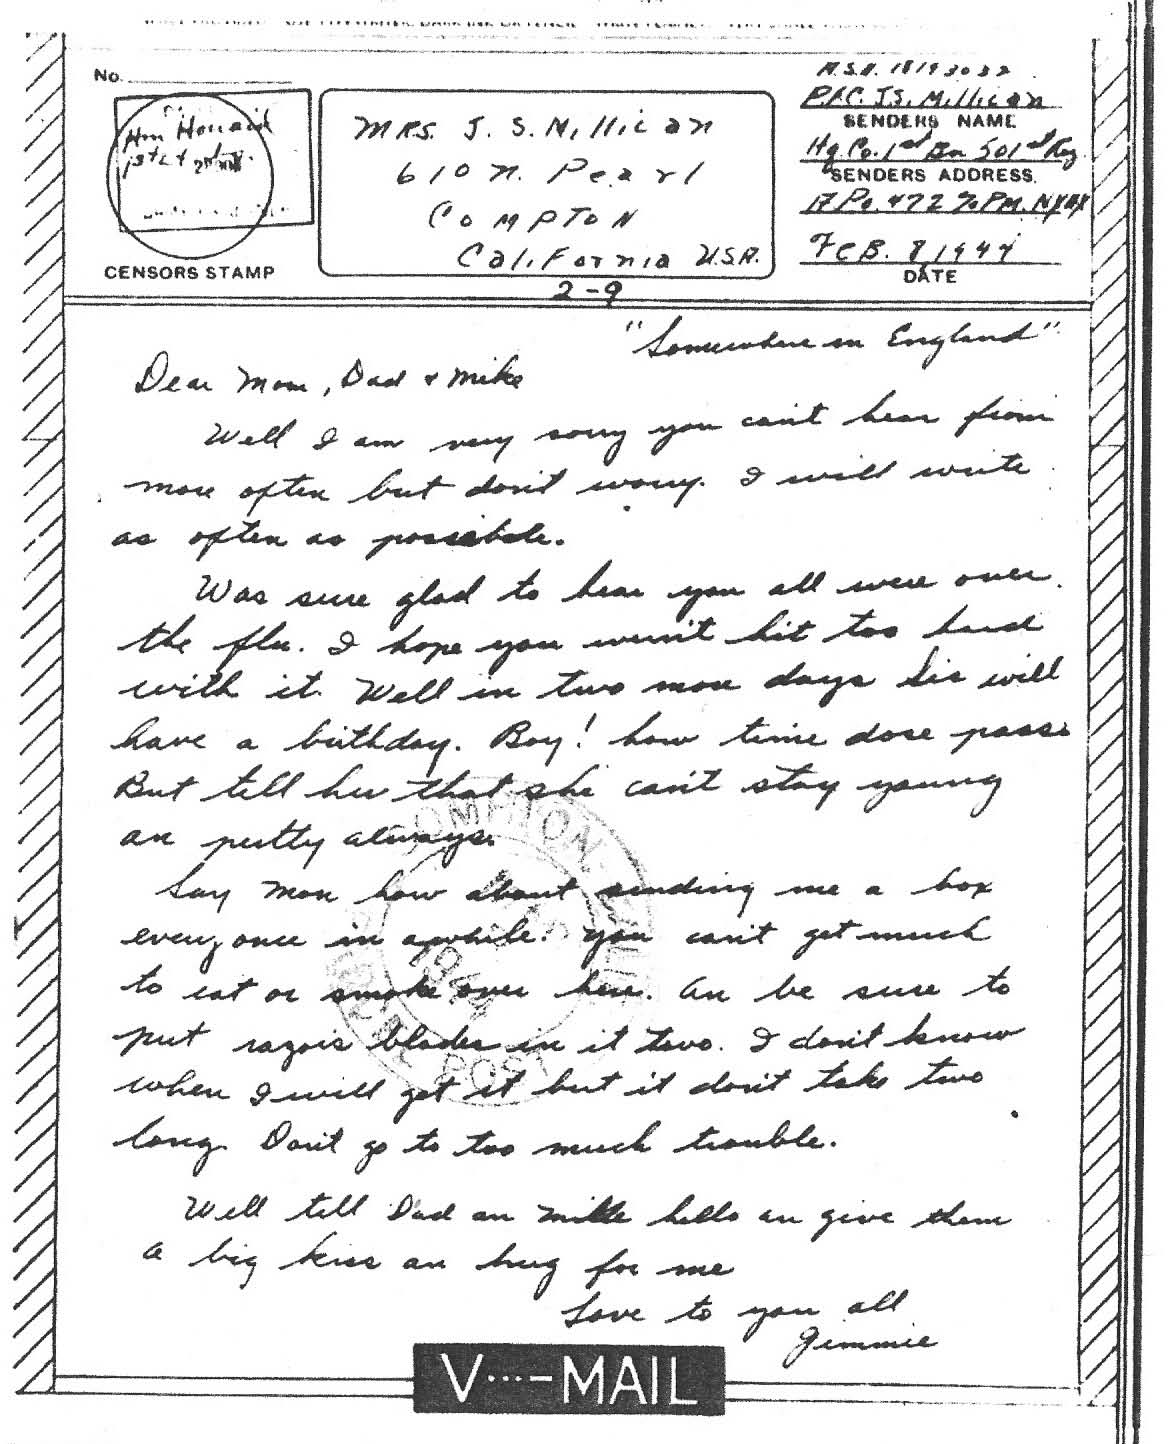 No.
Wm Howard
1st Lt
CENSORS STAMP
MRS. J. S. Millican
610 N. Pearl
COMPTON
California U.S.A.
2-9
A.S.N. 18193032
P.F.C. J.S. Millican
SENDERS NAME
Hq Co. 1st Bn 501st Reg
SENDERS ADDRESS.
A.P.O. 472 % P.M. N.Y. N.Y.
FEB. 8, 1944
DATE
"Somewhere in England"
Dear Mom, Dad & Mike
Well I am very sorry you can't hear from
more often but don't worry. I will write
as often as possible.
Was sure glad to hear you all were over
the flu. I hope you wern't hit too hard
with it. Well in two more days Sis will
have a birthday. Boy! how time dose pass.
But tell her that she can't stay young
an pertty always.
Say Mom how about sending me a box
every once in awhile. You can't get much
to eat or smoke over here. An be sure to
put razois blades in it two. I don't know
when I will get it but it don't take two
long. Don't go to too much trouble.
Well tell Dad an Mike hello an give them
a big kiss an hug for me
Love to you all
Jimmie
COMPTON
POST
V···—MAIL